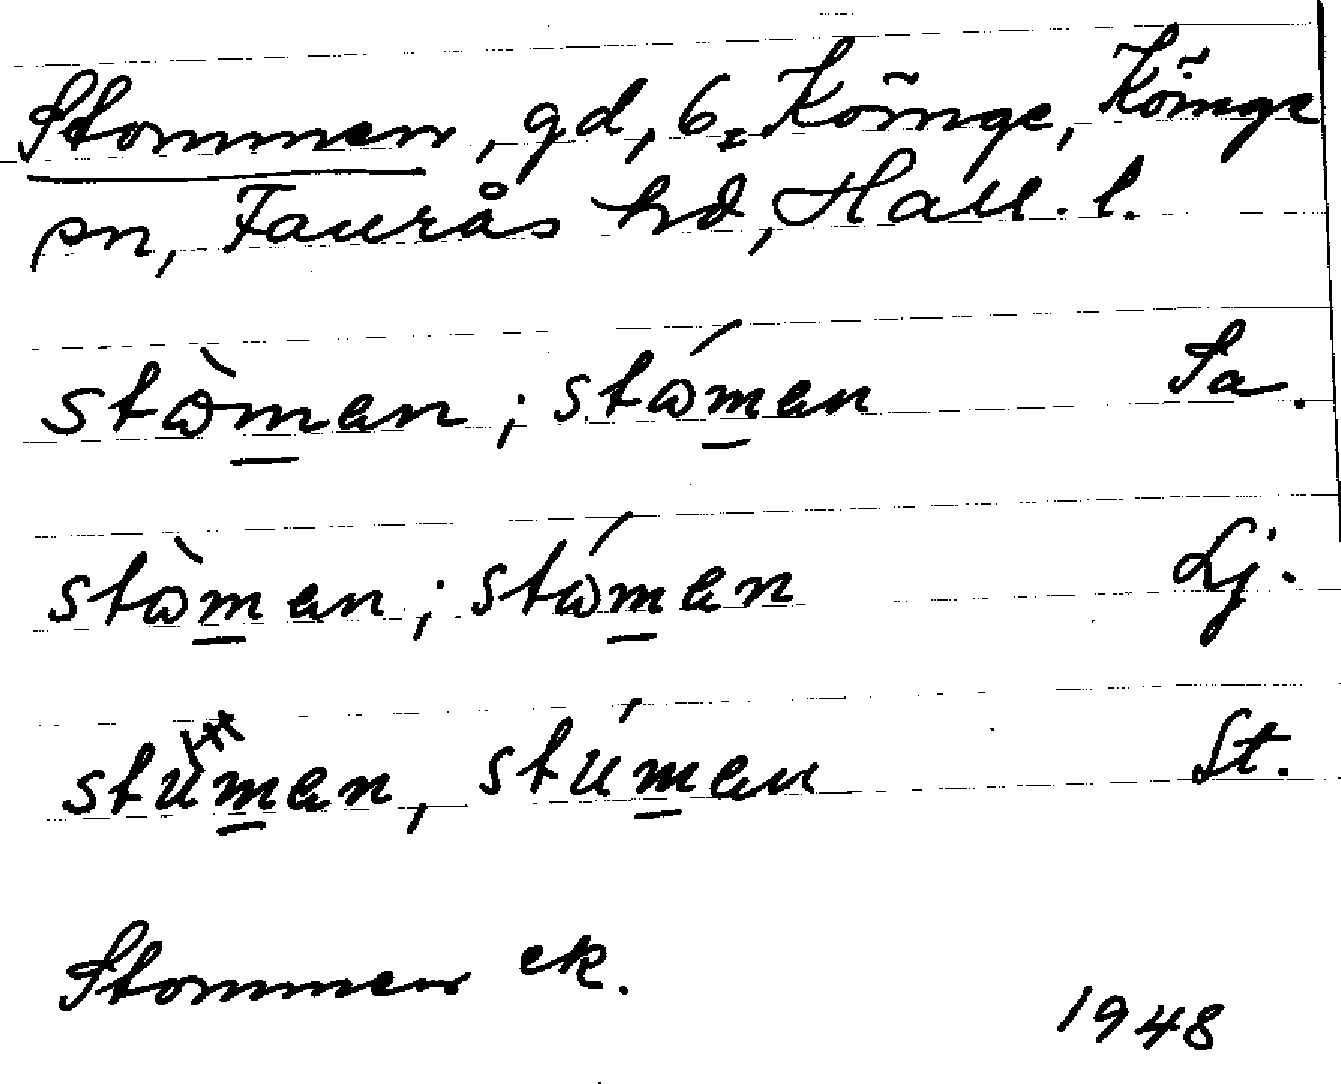 Stommen, gd, 6, Köinge, Köinge
sn, Faurås hd, Hall. l.
stɷ̀man; stɷ́man Sa.
stɷ̀man; stɷ́man Lj.
stuman, stúman St.
Stommen ek.
1948